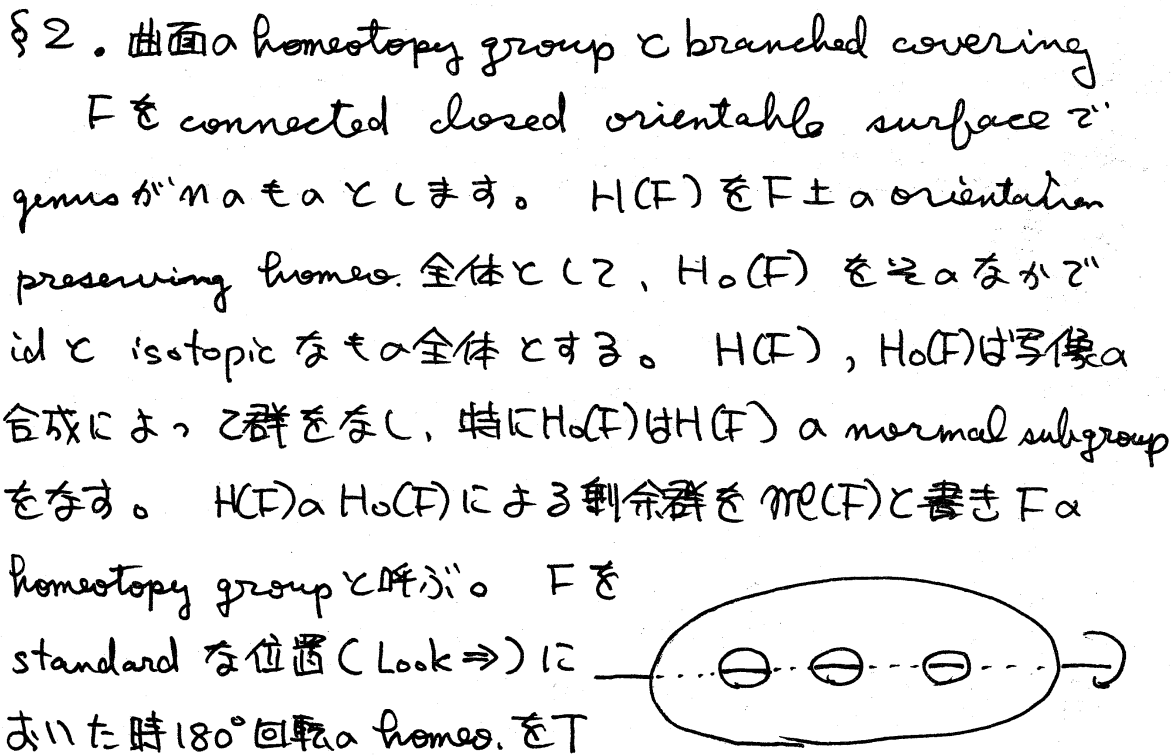 §2. 曲面の homeotopy group と branched covering
Fを connected closed orientable surface で
genus が n のものとします。 H(F) を F 上の orientation
preserving homeo. 全体として、H₀(F) をそのなかで
id と isotopic なもの全体とする。 H(F), H₀(F)は写像の
合成によって群をなし、特にH₀(F)はH(F) の normal subgroup
をなす。 H(F)の H₀(F)による剰余群を M(F)と書き F の
homeotopy group と呼ぶ。 F を
standard な位置(Look⇒)に
おいた時180°回転の homeo. をT